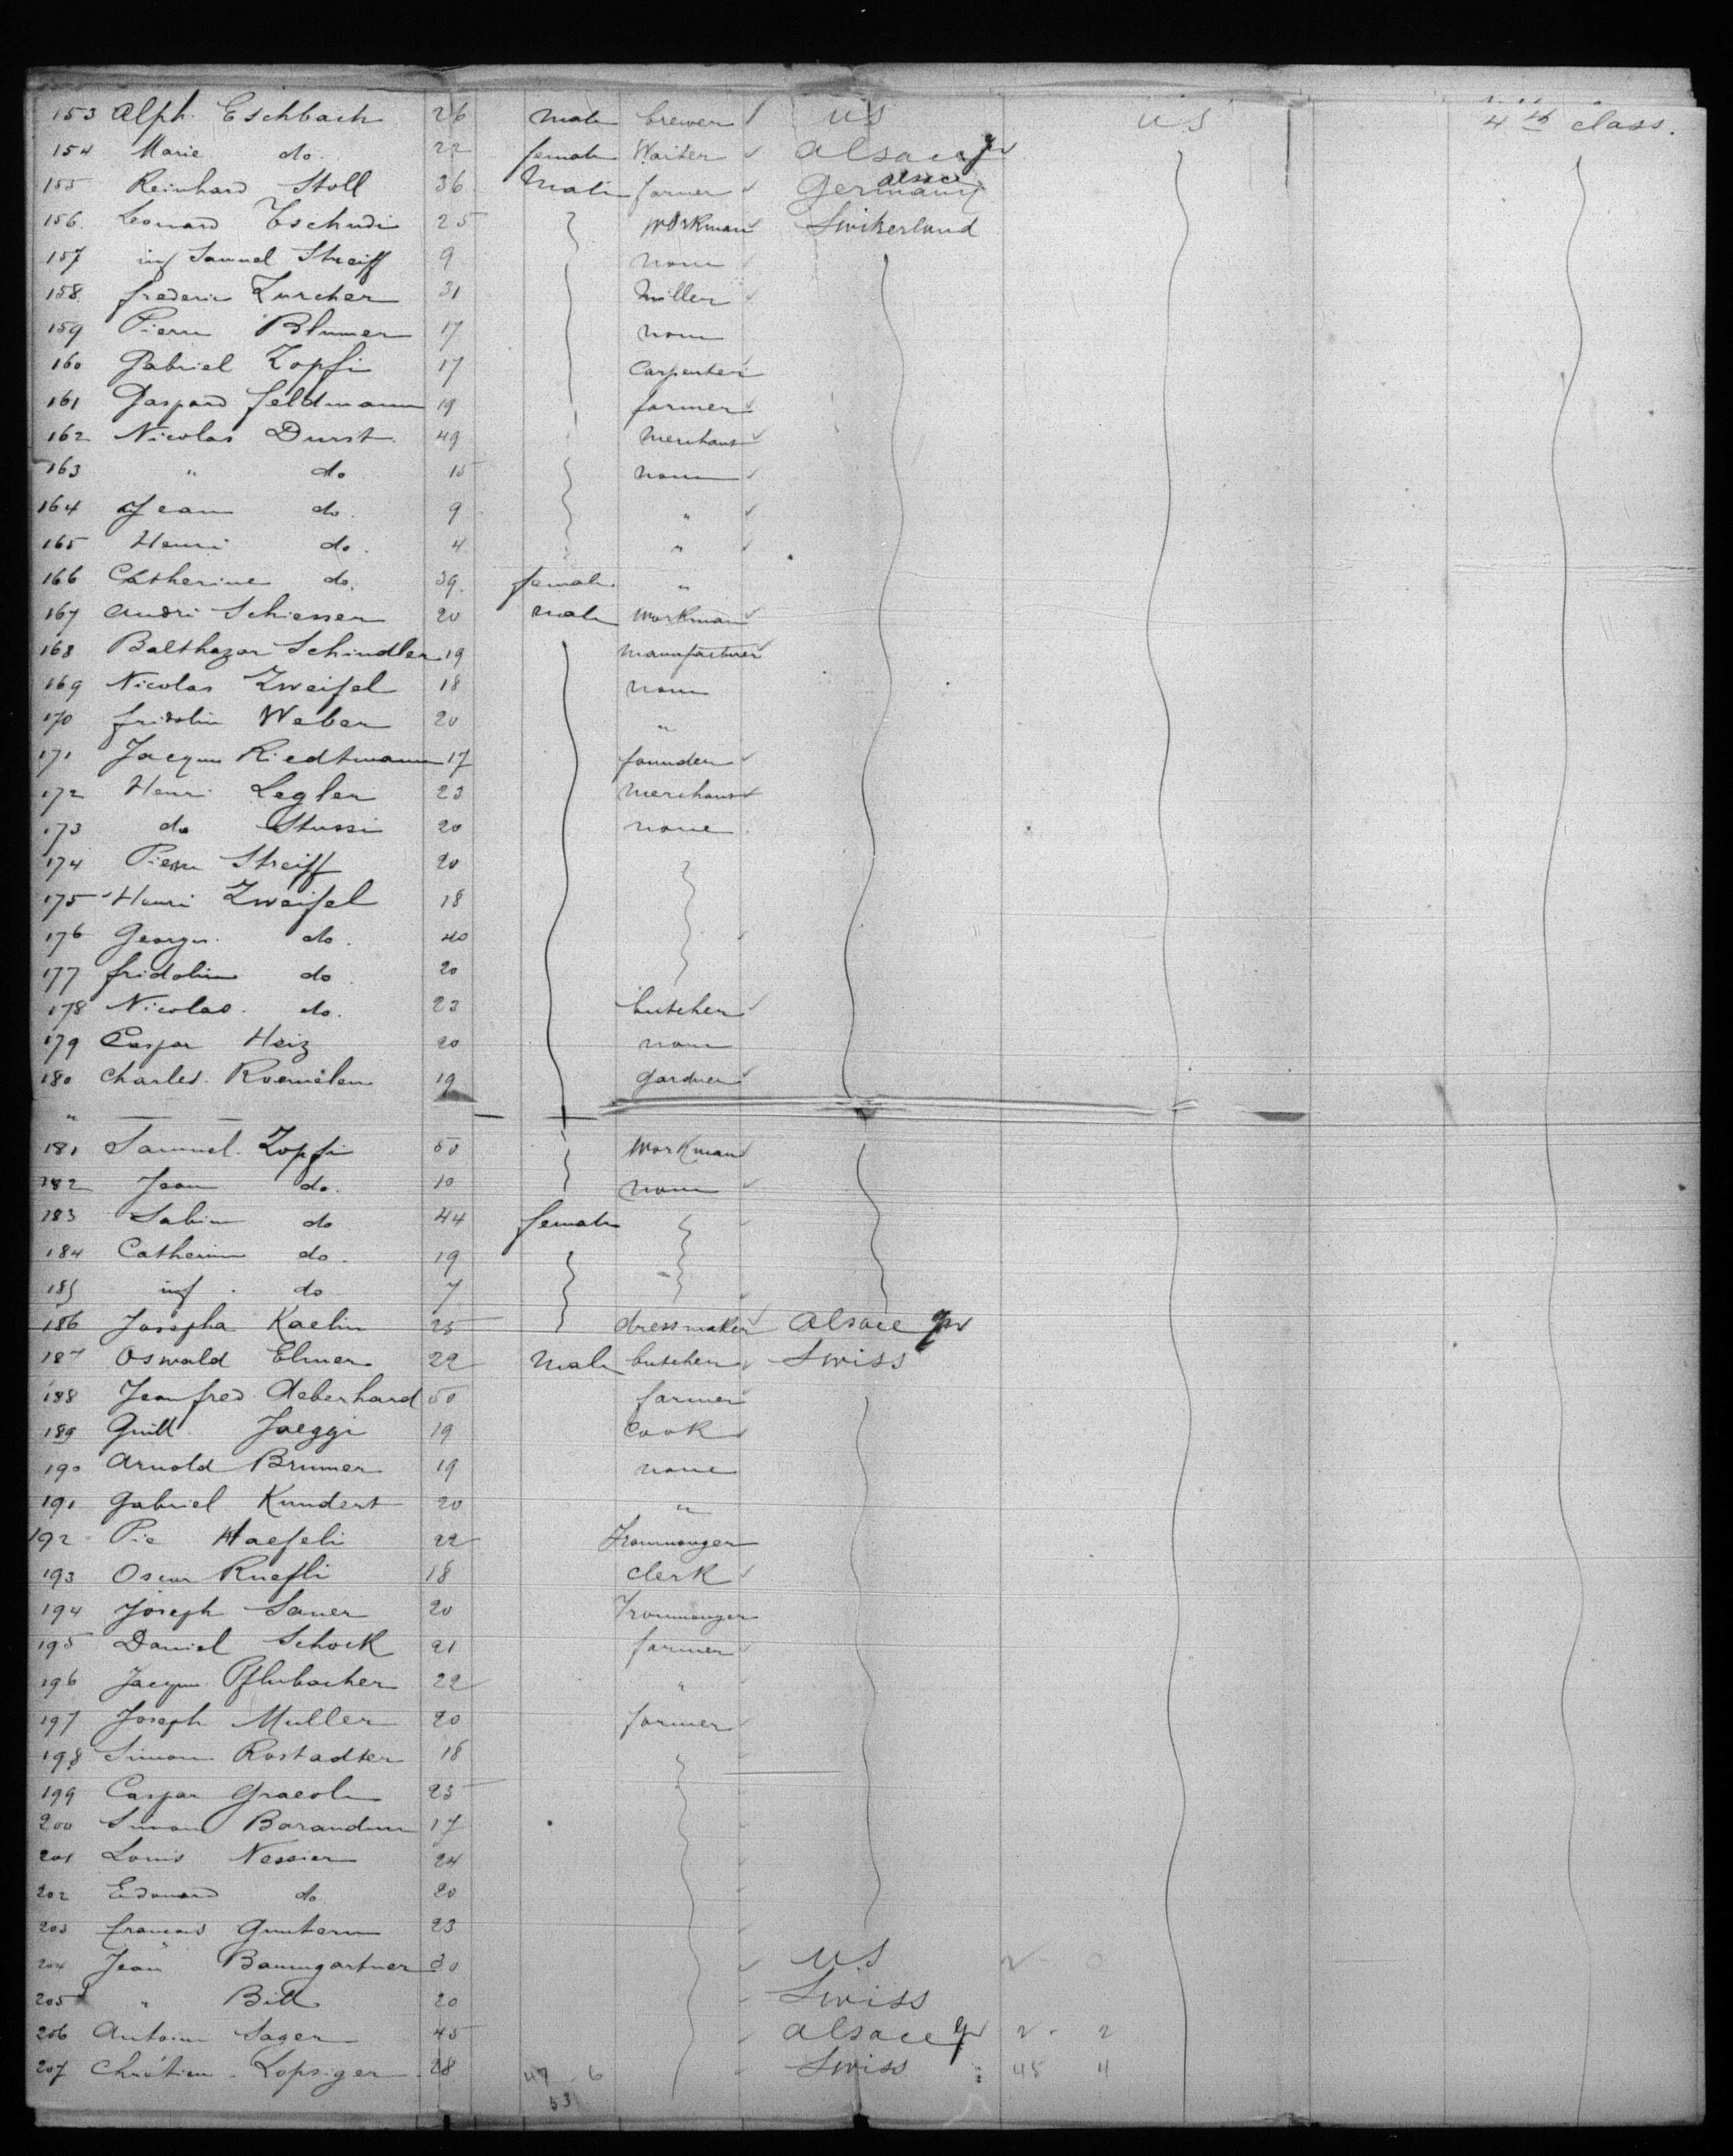 153 Alph. Eschbach 26 male brewer US US 4th class.
154 Marie do. 22 female Waiter Alsace gr
155 Reinhard Stoll 36 Male farmer Germany Alsace
156. Leonard Tschudi 25 workman Switzerland
157 inf Samuel Streiff 9 none
158. frederic Zurcher 31 Miller
159 Pierre Blumer 17 none
160 Gabriel Zopfi 17 Carpenter
161 Gaspard feldmann 19 farmer
162 Nicolas Durst 49 Merchant
163 " do 15 none
164 Jean do. 9 "
165 Henri do. 4 "
166 Catherine do. 39. female "
167 André Schiesser 20 male workman
168 Balthazar Schindler 19 Manufacturer
169 Nicolas Zweifel 18 none
170 fridolin Weber 20 "
171 Jacques Riedtmann 17 founder
172 Henri Legler 23 Merchant
173 do Stussi 20 none
174 Pierre Streiff 20
175 Henri Zweifel 18
176 Georges do. 40
177 fridolin do 20
178 Nicolas. do. 23 butcher
179 Caspar Heiz 20 none
180 Charles. 19 gardner
"
181 Samuel. Zopfi 50 workman
182 Jean do. 10 none
183 Sabine do 44 female
184 Catherine do. 19
185 inf. do 7
186 Josepha Kaelin 25 dressmaker Alsace gr
187 Oswald Elmer 22 Male butcher Swiss
188 Jean fred. Aeberhard 50 farmer
189 Guill. Jaeggi 19 Cook
190 Arnold Brunner 19 none
191 Gabriel Kundert 20 "
192 Pie Haefeli 22 Ironmonger
193 Oscar Ruefli 18 clerk
194 Joseph Saner 20 Ironmonger
195 Daniel Schock 21 farmer
196 Jacques Pflubacher 22 "
197 Joseph Muller 20 farmer
198 Simon Rostadter 18
199 Caspar 23
200 Simon Barandun 17
201 Louis Nessier 24
202 Edouard do 20
203 francois Guntern 23
204 Jean Baumgartner 30 US
205 " Bill 20 Swiss
206 Antoine Sager 45 Alsace gr 2 - 2
207 Chrétien. Lopsiger 28 49 6 Swiss 45 4
53